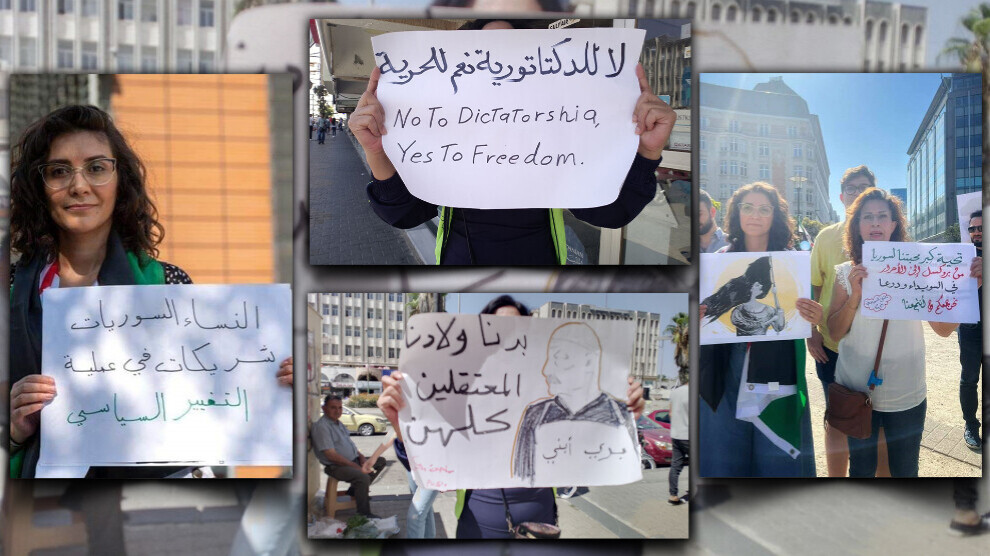 لا للدكتاتورية نعم للحرية
No To Dictatorship,
Yes To Freedom.
النساء السوريات
شريكات في عملية
التغيير السياسي
بدنا ولادنا
المعتقلين
كلهن
بدي أبني
تحية كبر محبتنا لسوريا
من بروكسل الى الأحرار
في السويداء ودرعا